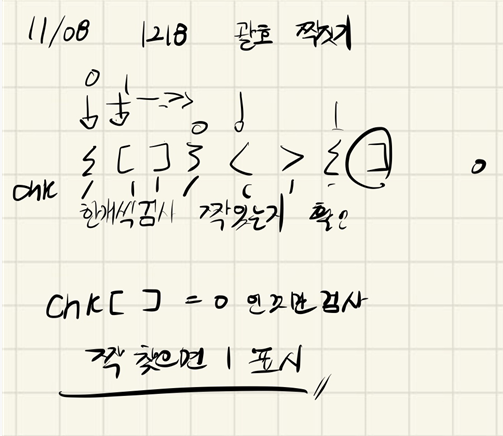 11/08 1218 괄호 짝짓기
0 1
0
{ [ ] } < > { ] 0
chk 1 1 1 1
한개씩 검사 짝있는지 확인
chk[ ] = 0 인것만 검사
짝 찾으면 1 표시